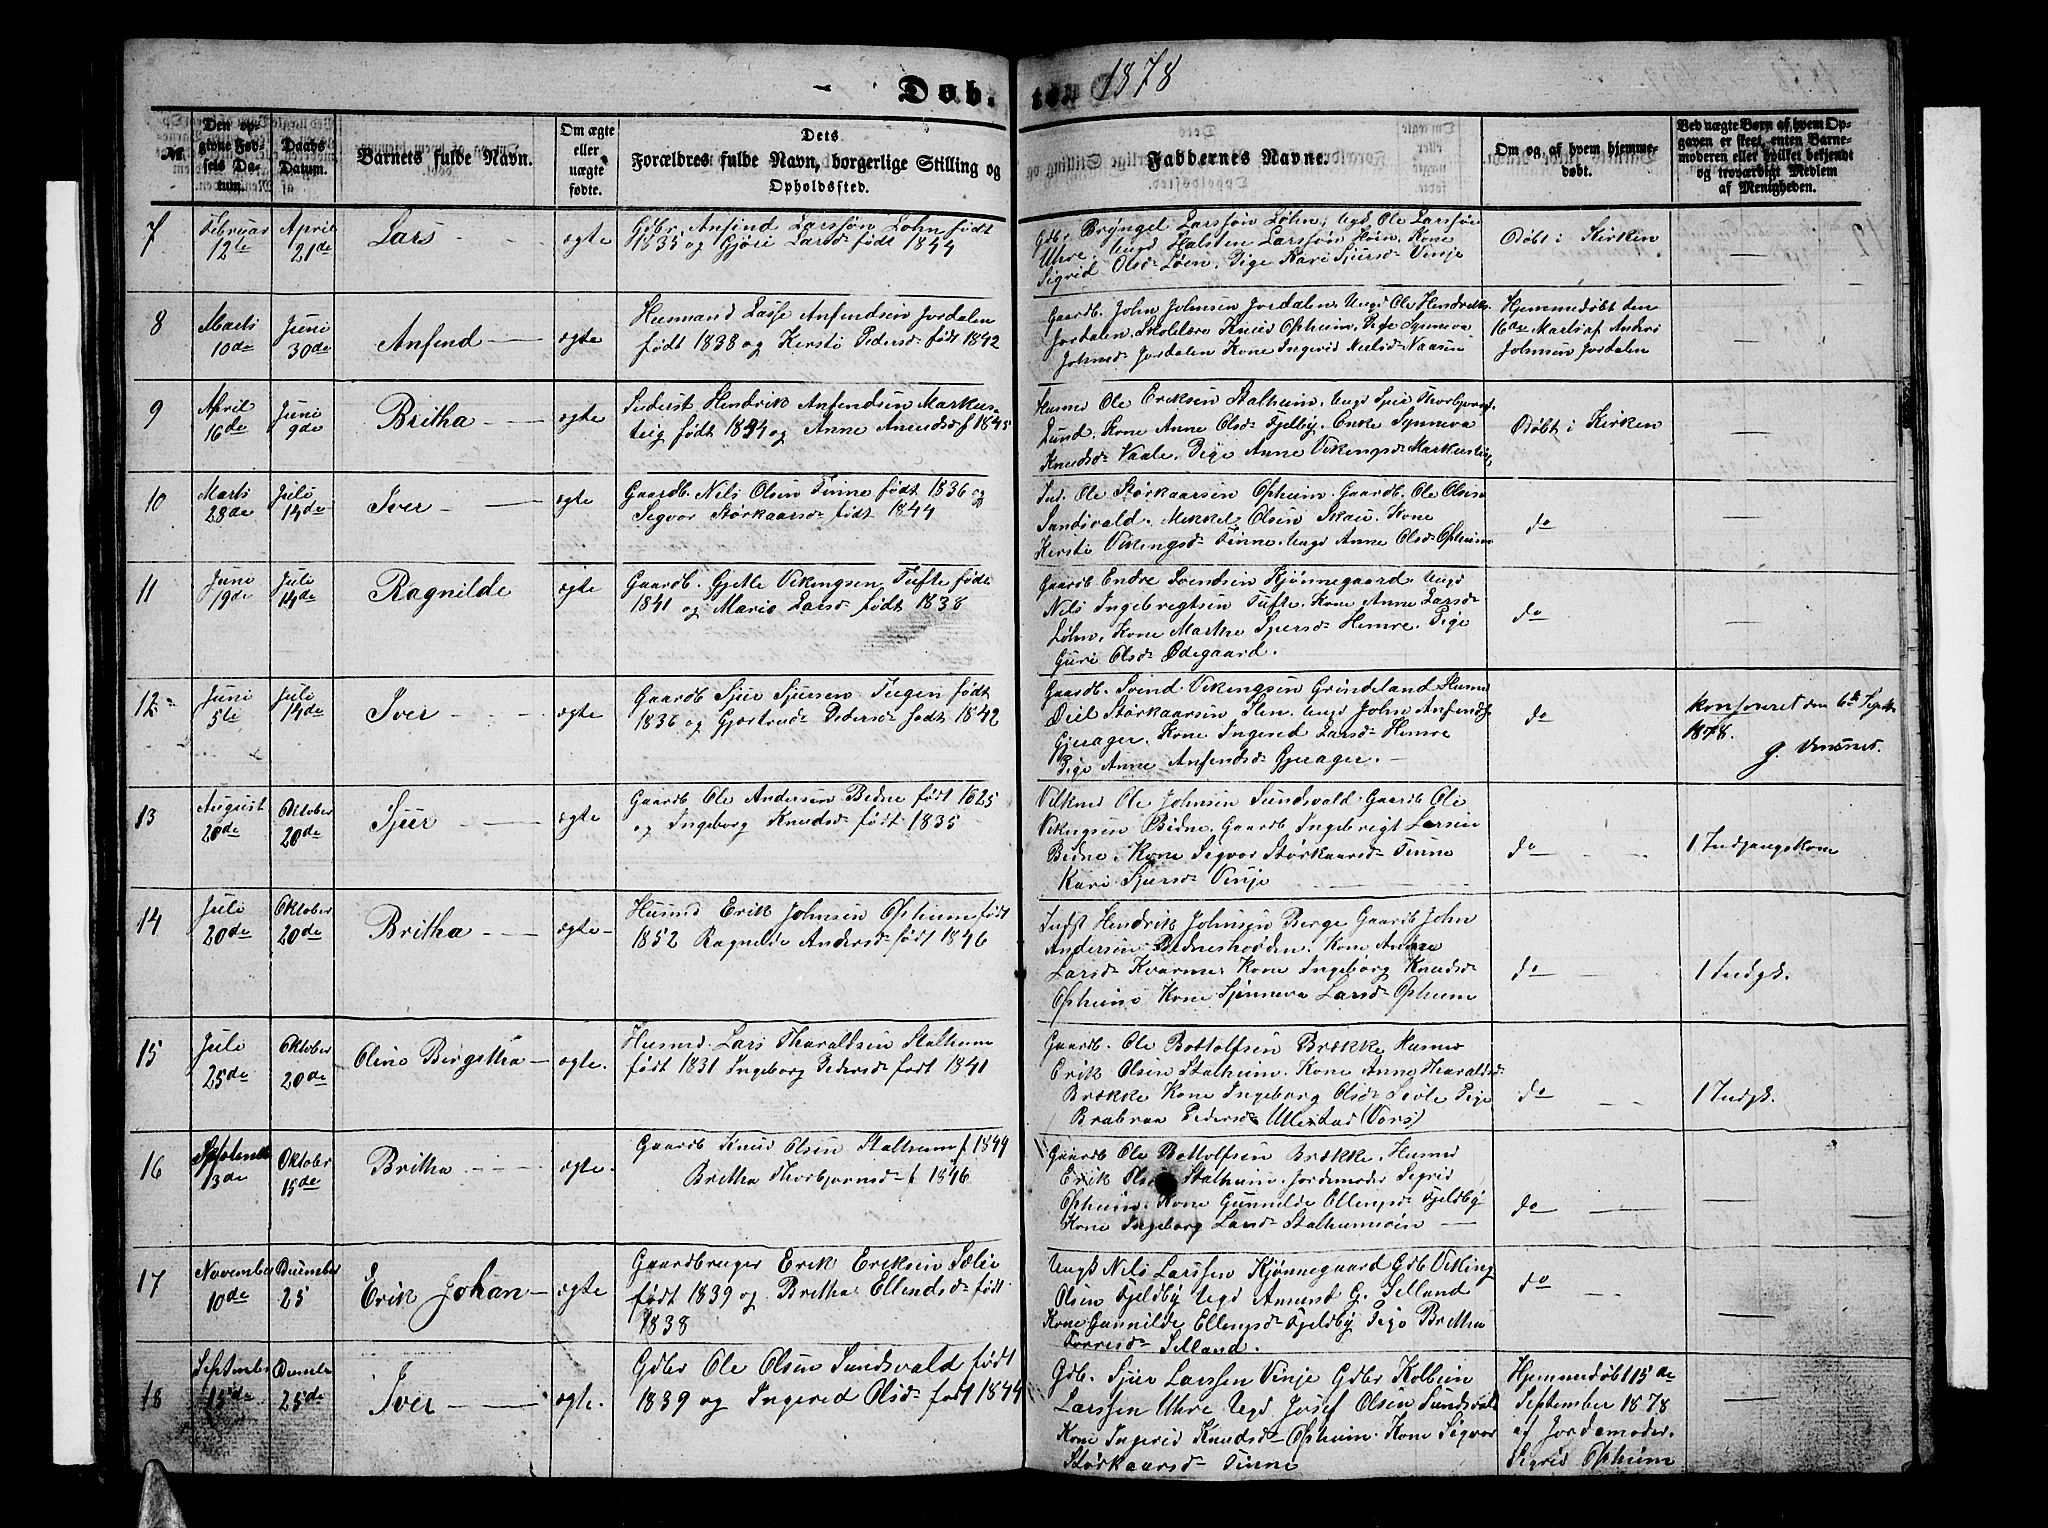 Døb. te. 1878
№
Den opgivne Fødsels Datum.
Daabs Datum.
Barnets fulde Navn.
Om ægte eller uægte fødte.
Dets Forældres fulde Navn, borgerlige Stilling og Opholdssted.
Faddernes Navne.
Om og af hvem hjemmedøbt.
Ved uægte Børn af hvem Opgaven er skeet, enten Barnemoderen eller hvilket bekjendt og troværdigt Medlem af Menigheden.
7 Februar 12te April 21de Lars ægte
Gdbr Anfind Larssøn Løhn født
1835 og Gjøri Larsd. født 1844
Gdbr Bryngel Larssøn Løhn, Ungd Ole Larssøn
Uhre, Ungd Halsten Larssøn Løen, Kone
Sigrid Olsd. Løen, Pige Kari Sjursd. Vinje
Døbt i Kirken
8 Marts 10de Juni 30de Anfind ægte
Husmand Lasse Anfindsen Jordalen
født 1838 og Kersti Pedersd. født 1842
Gaardb. John Johnsen Jordalen, Ungd Ole Hendriks
Jordalen. Skolelære Knud Opheim, Pige Synneva
Johnsd. Jordalen Kone Ingerid Nielsd.
Hjemmedøbt den
16de Marts af Anders
Johnsen Jordalen
9 April 16de Juni 9de Britha ægte
Hendrik Anfindsen Markus-
teig født 1834 og Anne f 1845
Husmd Ole Eriksen Stalheim, Ungd Sjur Thorbjørns.
Lund, Kone Anne Olsd. Fjelby. Enke Synneva
Knudsd. Vaale, Pige Anne Vikingsd. Markusteig
Døbt i Kirken
10 Marts 28de Juli 14de Iver ægte
Gaardb. Nils Olsen Tinne født 1836 og
Sigvor Størkaarsd. født 1844
Ole Størkaarsen Opheim. Gaardb. Ole Olsen
Sundsvald. Mikkel Olsen Skau. Kone
Kersti Vikingsd. Tinne. Ungd Anne Olsd. Opheim
do
11 Juni 19de Juli 14de Ragnilde ægte
Gaardb. Gjetle Vikingsen Tufte født
1841 og Mario Larsd. født 1838
Gaardb Endre Svendsen Kjønnegaard. Ungd
Nils Ingebregtsen Tufte. Kone Anne Larsd.
Løhn, Kone Martha Sjursd. Himre. Pige
Guri Olsd. Ødegaard.
do
12 Juni 5te Juli 14de Iver ægte
Gaardb Sjur Sjursen Tugen født
1836 og Gjertrud Pedersd. født 1842
Gaardb. Svend Vikingsen Grindeland Husmd
Størkaarsen Ungd John Anfinds.
Gjerager. Kone Ingerid Larsd. Himre
Pige Anne Anfindsd. Gjerager.
do
den 6te Septb
1878.
13 August 20de Oktober 20de Sjur ægte
Gaardb Ole Andersen Bidne født 1825
og Ingeborg Knudsd. født 1835
Ole Johnsen Sundsvald. Gaardb Ole
Vikingsen Bidne. Gaardb Ingebrigt Larsen
Bidne. Kone Sigvor Størkaarsd. Tinne
Kari Sjursd. Vinje
do
1 Indgangskone
14 Juli 20de Oktober 20de Britha ægte
Husmd Erik Johnsen Opheim født
1852 Ragnilde Andersd. født 1846
Indst Hendrik Johnsen Berge Gaardb John
Andersen Kone
Larsd. Kvarme Kone Ingeborg Knudsd.
Opheim Kone Synneva Larsd. Opheim
do
1 Indgk.
15 Juli 25de Oktober 20de Oline Birgitha ægte.
Husmd. Lars Tharaldsen Stalheim
født 1831 Ingeborg Pedersd. født 1841
Gaardb. Ole Bottolfsen Brække Husmd
Erik Olsen Stalheim. Kone Anne Haraldsd.
Brække Kone Ingeborg Olsd. Pige
Brabraa Pedersd. Ullestad (Vors)
do
1 Indgk.
16 September 13de Oktober 15de Britha ægte.
Gaardb Knud Olsen Stalheim f 1849
Britha Thorbjørnsd. f 1846
Gaardb Ole Bottolfsen Brække. Husmd
Erik Olsen Stalheim. Jordemoder Sigrid
Opheim. Kone Gunnilde Ellingsd. Fjeldby
Kone Ingeborg Larsd. Stalheimsøen
do
17 November 10de December 25 Erik Johan ægte
Gaardbruger Erik Eriksen Sælei
født 1839 og Britha Ellendsd. født
1838
Ungk Nils Larssen Kjønnegaard Gdb Viking
Olsen Fjeldby Ungd Amund G. Selland
Kone Gunnilde Ellingsd. Fjeldby Pige Britha
Torresd. Selland.
do
18 September 15de December 25de Iver ægte.
Gdbr Ole Olsen Sundsvald født
1839 og Ingerid Olsd. født 1844
Gdb. Sjur Larssen Vinje Gdbr Kolbein
Larssen Uhre Ungd Josef Olsen Sundsvald
Kone Ingerid Knudsd. Opheim. Kone Sigvor
Størkaarsd. Tinne
Hjemmedøbt 15de
September 1878
af Jordemoder
Sigrid Opheim